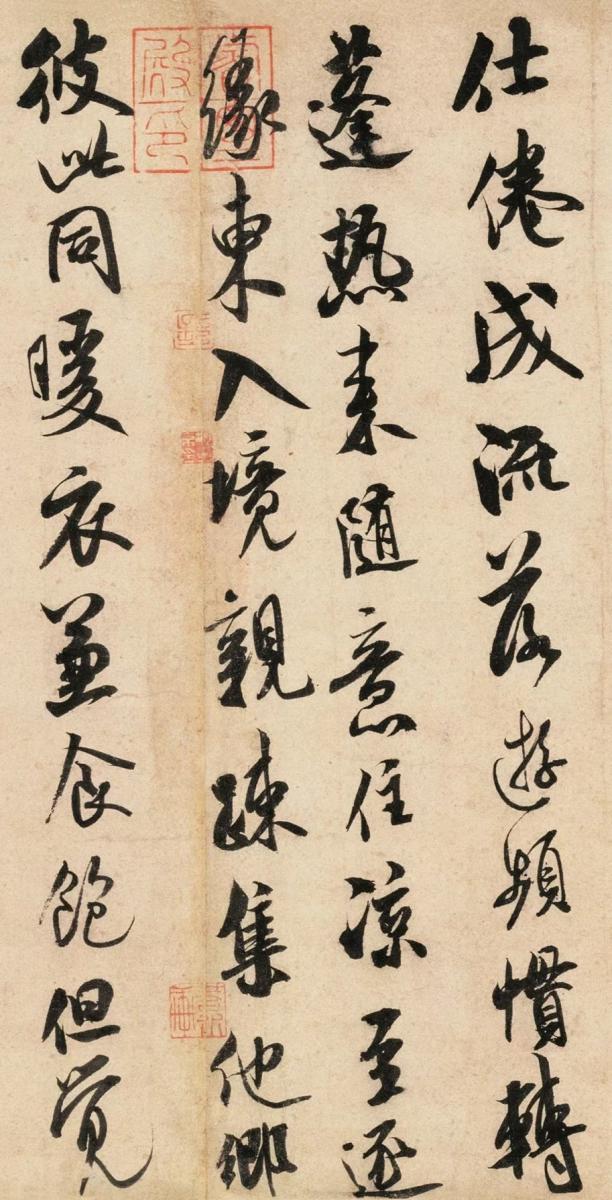 仕倦成流落遊頻慣轉
蓬熱来随意住凉至逐
緣東入境親疎集他鄉
彼此同暖衣兼食飽但覺